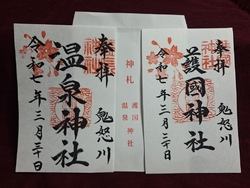 奉拝
鬼怒川
護國神社
令和七年三月三十日
神札
護国神社
温泉神社
奉拝
鬼怒川
温泉神社
令和七年三月三十日